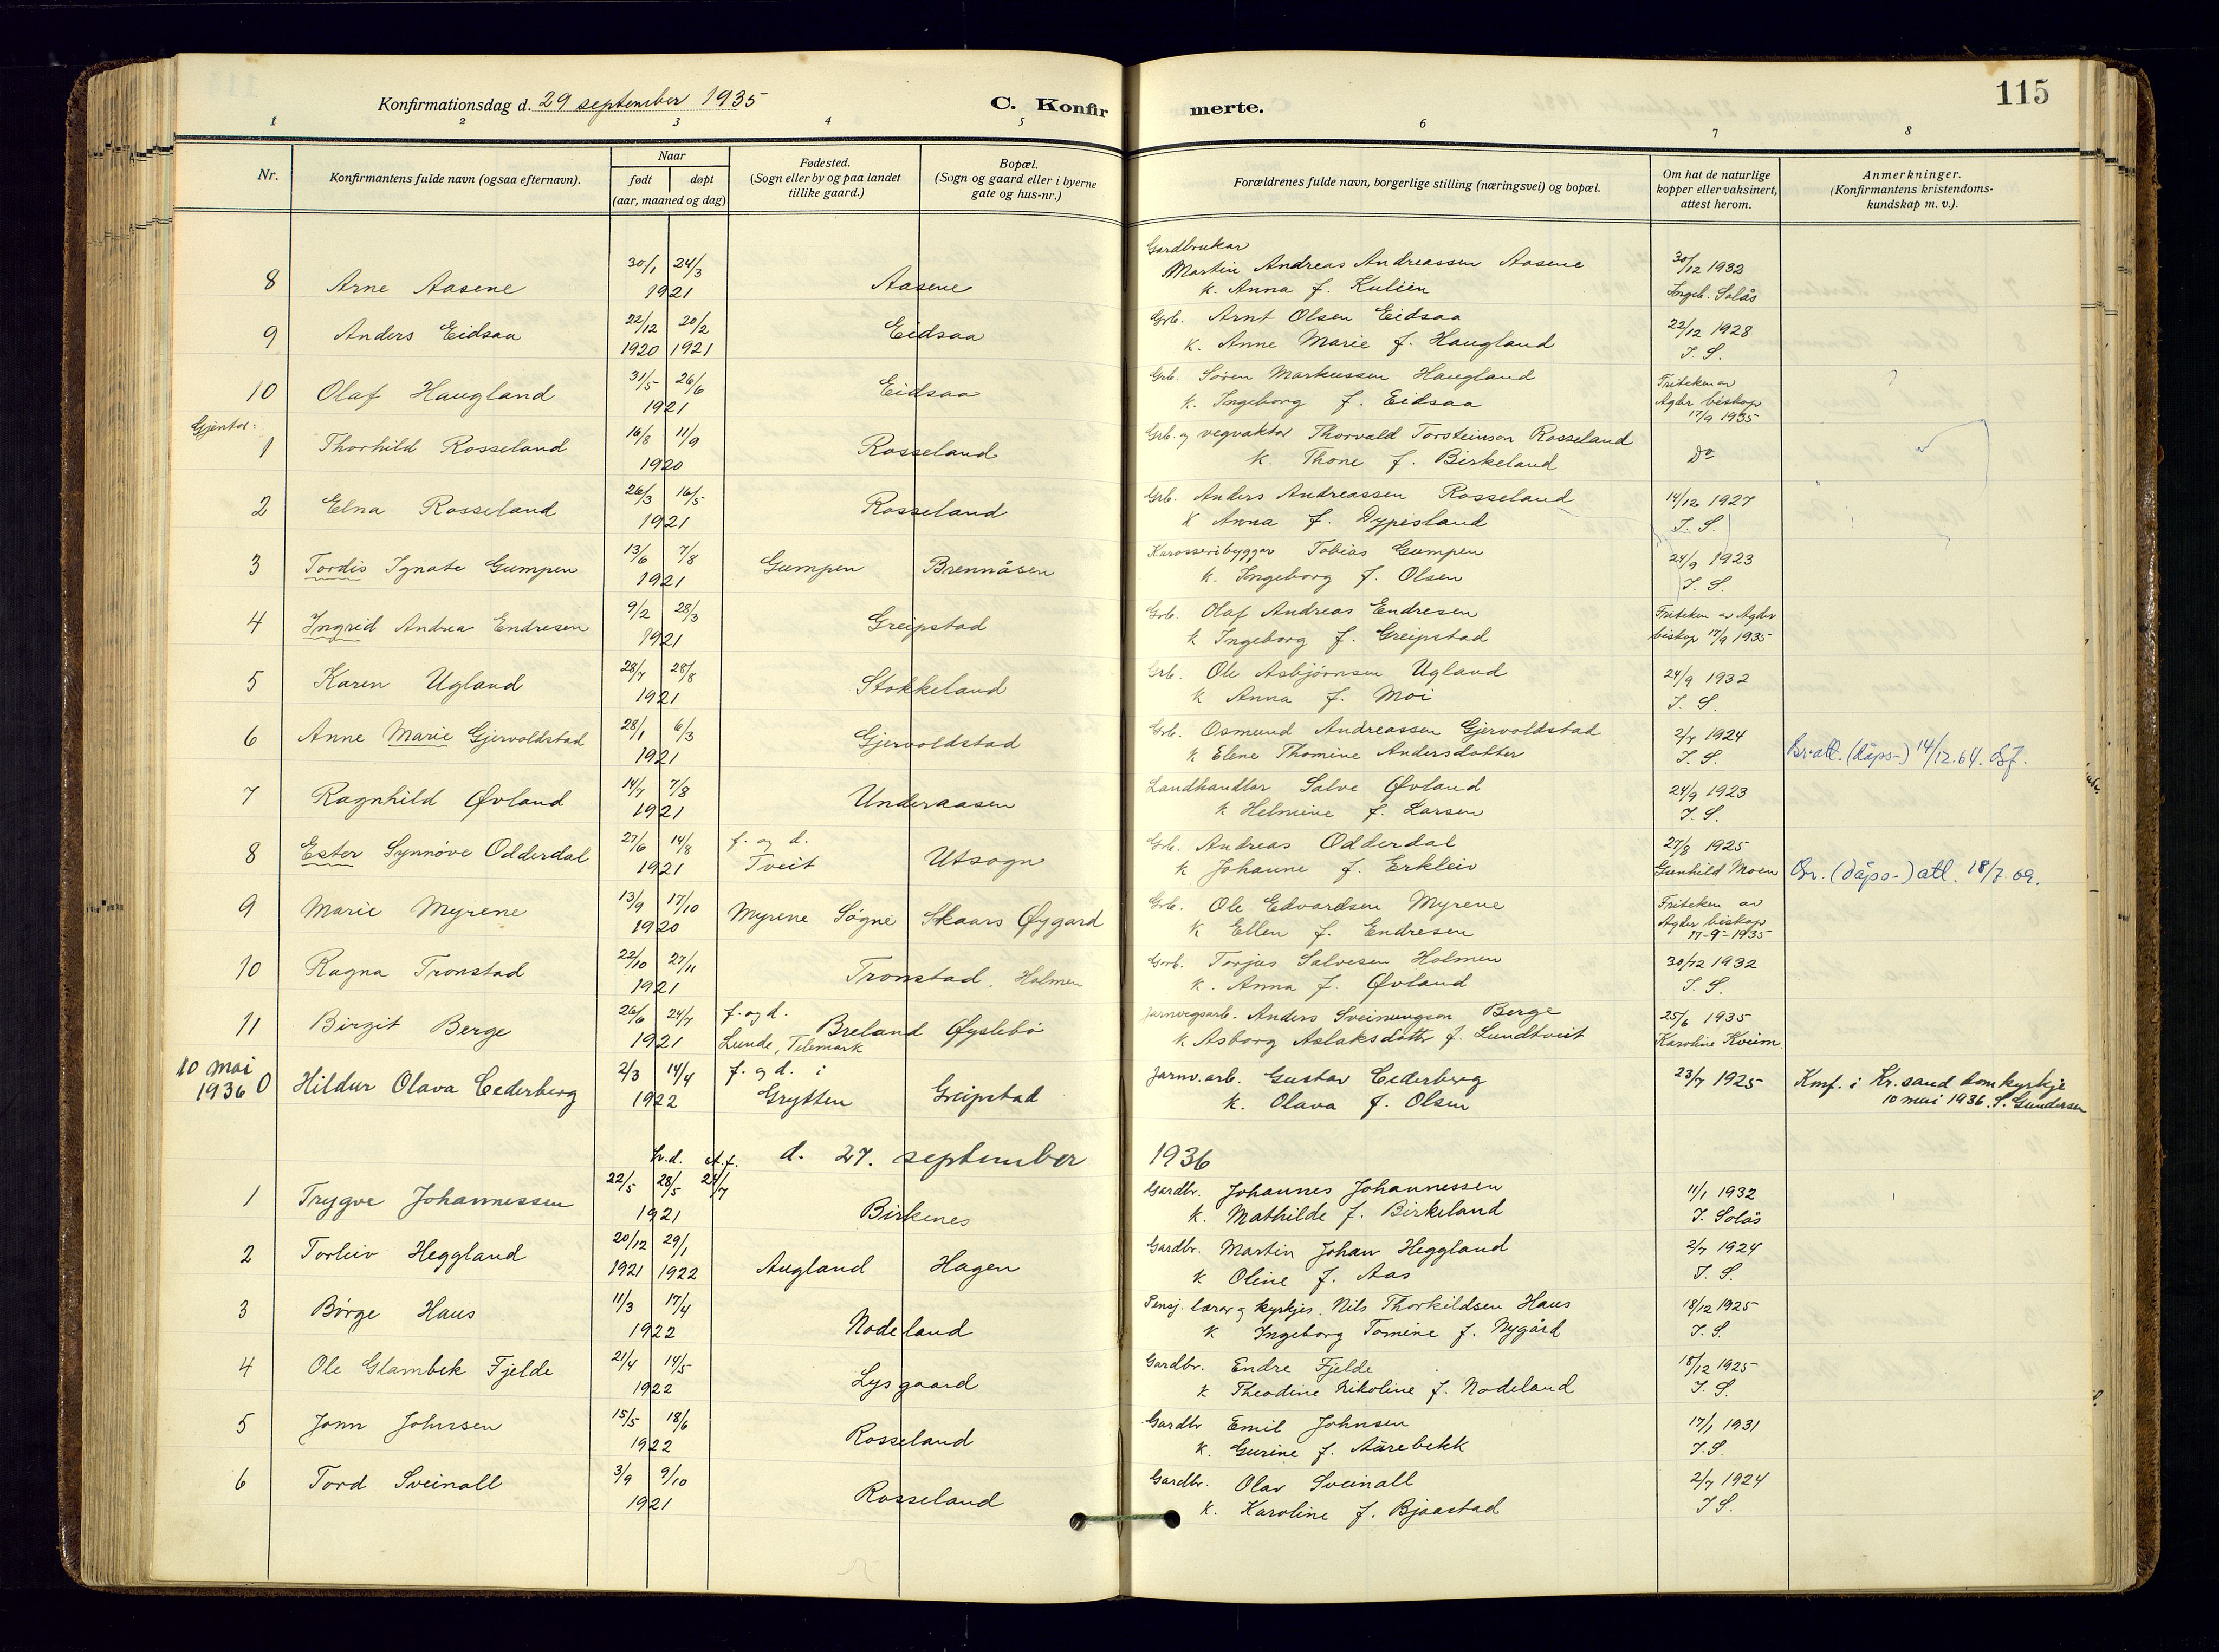 Konfirmationsdag d. 29 september 1935 C. Konfirmerte. 115
1 2 3 4 5 6 7 8
Nr. Konfirmantens fulde navn (ogsaa efternavn). Naar født døpt (aar, maaned og dag) Fødested. (Sogn eller by og paa landet tillike gaard.) Bopæl. (Sogn og gaard eller i byerne gate og hus-nr.) Forældrenes fulde navn, borgerlige stilling (næringsvei) og bopæl. Om hat de naturlige kopper eller vaksinert, attest herom. Anmerkninger. (Konfirmantens kristendomskundskap m. v.).
Gardbrukar
30/1 24/3 Martin Andreas Andreassen Aasene 30/12 1932
8 Arne Aasene 1921 Aasene k. Anna f. Kulien Ingeb. Solås
22/12 20/2 Grb. Arnt Olsen Eidsaa 22/12 1928
9 Anders Eidsaa 1920 1921 Eidsaa k. Anne Marie f. Haugland I. S.
31/5 26/6 Grb. Søren Markussen Haugland Friteken av
10 Olaf Haugland 1921 Eidsaa k. Ingeborg f. Eidsaa Agder biskop 17/9 1935
Gjentor:
16/8 11/9 Grb. og vegvaktar Thorvald Torsteinson Rosseland
1 Thorhild Rosseland 1920 Rosseland k. Thone f. Birkeland Do
26/3 16/5 Grb. Anders Andreassen Rosseland 14/12 1927
2 Elna Rosseland 1921 Rosseland k Anna f. Dypesland I. S.
13/6 7/8 Karosseribyggar Tobias Gumpen 24/9 1923
3 Tordis Ignate Gumpen 1921 Gumpen Brennåsen k. Ingeborg f. Olsen I. S.
9/2 28/3 Grb. Olaf Andreas Endresen Friteken av Agder
4 Ingrid Andrea Endresen 1921 Greipstad k Ingeborg f. Greipstad biskop 17/9 1935
28/7 28/8 Grb. Ole Asbjørnsen Ugland 24/9 1932
5 Karen Ugland 1921 Stokkeland k Anna f. Moi I. S.
28/1 6/3 Grb. Osmund Andreassen Gjervoldstad 2/7 1924
6 Anne Marie Gjervoldstad 1921 Gjervoldstad k Elene Thomine Andersdotter I. S. Br.att. (dåps-) 14/12.64.
14/7 7/8 Landhandlar Salve Øvland 24/9 1923
7 Ragnhild Øvland 1921 Underaasen k Helmine f. Larsen I. S.
27/6 14/8 f. og d. Grb. Andreas Odderdal 27/8 1925
8 Ester Synnøve Odderdal 1921 Tveit Utsogn k Johanne f. Erkleiv Gunhild Moen Br. (dåps-) att. 18/7.69.
13/9 17/10 Grb. Ole Edvardsen Myrene Friteken av
9 Marie Myrene 1920 Myrene Søgne Skaars Øygard k Ellen f. Endresen Agder biskop 17-9-1935
22/10 27/11 Grb. Torjus Salvesen Holmen 30/12 1932
10 Ragna Tronstad 1921 Tronstad. Holmen k. Anna f. Øvland I. S.
26/6 24/7 f. og d. Jarnvegsarb. Anders Sveinungson Berge 25/6 1935
11 Birgit Berge 1921 Lunde, Telemark Breland Øyslebø k Asborg Aslaksdotter f. Lundtveit Karoline Kveim
10 mai 2/3 14/4 f. og d. i Jarnv.arb. Gustav Cederberg 23/7 1925 Konf. i Kr.sand domkyrkje
1936 0 Hildur Olava Cederberg 1922 Grytten Greipstad k. Olava f. Olsen 10 mai 1936. S. Gundersen
h.d. st.f. d. 27. september 1936
22/5 28/5 24/7 Gardbr. Johannes Johannessen 11/1 1932
1 Trygve Johannessen 1921 Birkenes k. Mathilde f. Birkeland I. Solås
20/12 29/1 Gardbr. Martin Johan Heggland 2/7 1924
2 Torleiv Heggland 1921 1922 Augland Hagen k Oline f. Aas I. S.
11/3 17/4 Pensj. lærar og kyrkjes. Nils Thorkildsen Haus 18/12 1925
3 Børge Haus 1922 Nodeland k Ingeborg Tomine f. Nygård I. S.
21/4 14/5 Gardbr. Endre Fjelde 18/12 1925
4 Ole Glambek Fjelde 1922 Lysgaard k Theodine Nikoline f. Nodeland I. S.
15/5 18/6 Gardbr Emil Johnsen 17/1 1931
5 Jonn Johnsen 1922 Rosseland k. Gurine f. Aarebekk I. S.
3/9 9/10 Gardbr. Olav Sveinall 2/7 1924
6 Tord Sveinall 1921 Rosseland k. Karoline f. Bjaastad I S.